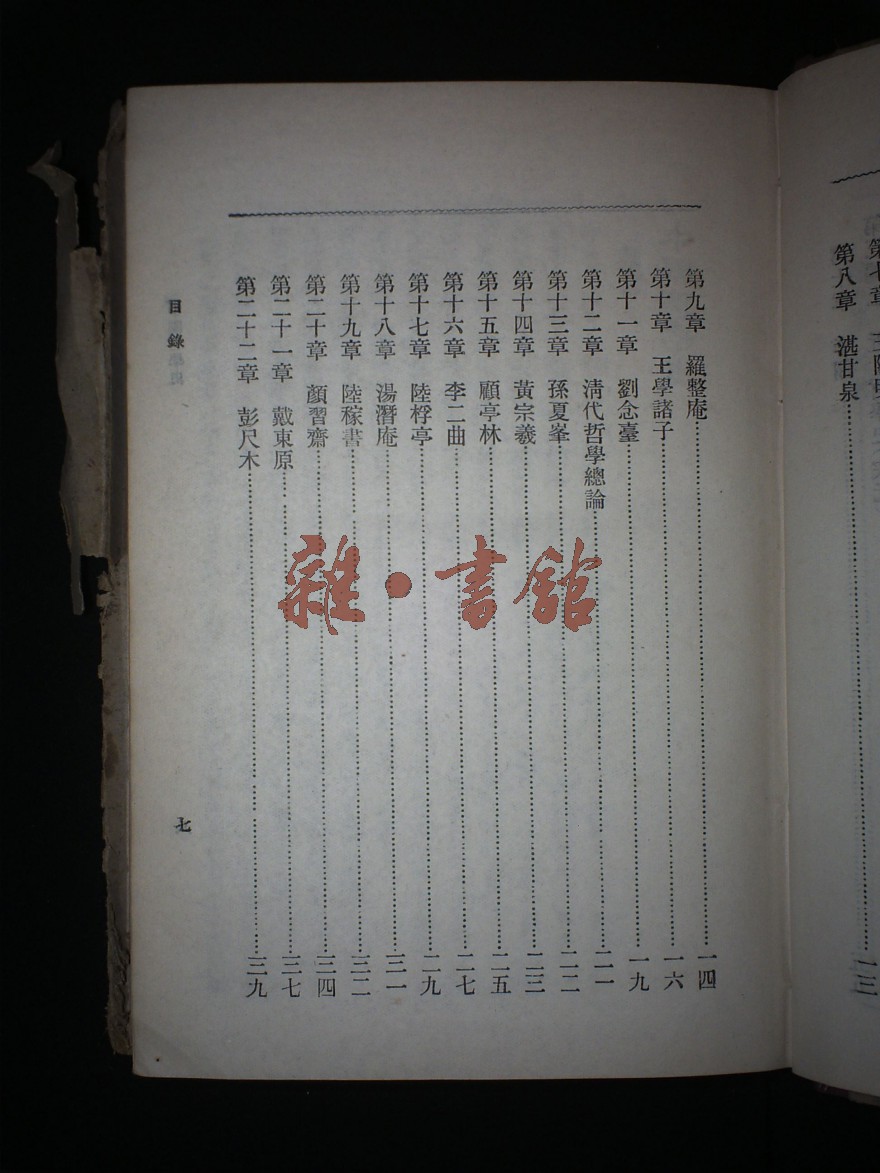 第八章 湛甘泉……一三
第九章 羅整庵……一四
第十章 王學諸子……一六
第十一章 劉念臺……一九
第十二章 清代哲學總論……二一
第十三章 孫夏峯……二二
第十四章 黃宗羲……二三
第十五章 顧亭林……二五
第十六章 李二曲……二七
第十七章 陸桴亭……二九
第十八章 湯潛庵……三一
第十九章 陸稼書……三二
第二十章 顏習齋……三四
第二十一章 戴東原……三七
第二十二章 彭尺木……三九
目錄
七
雜·書館